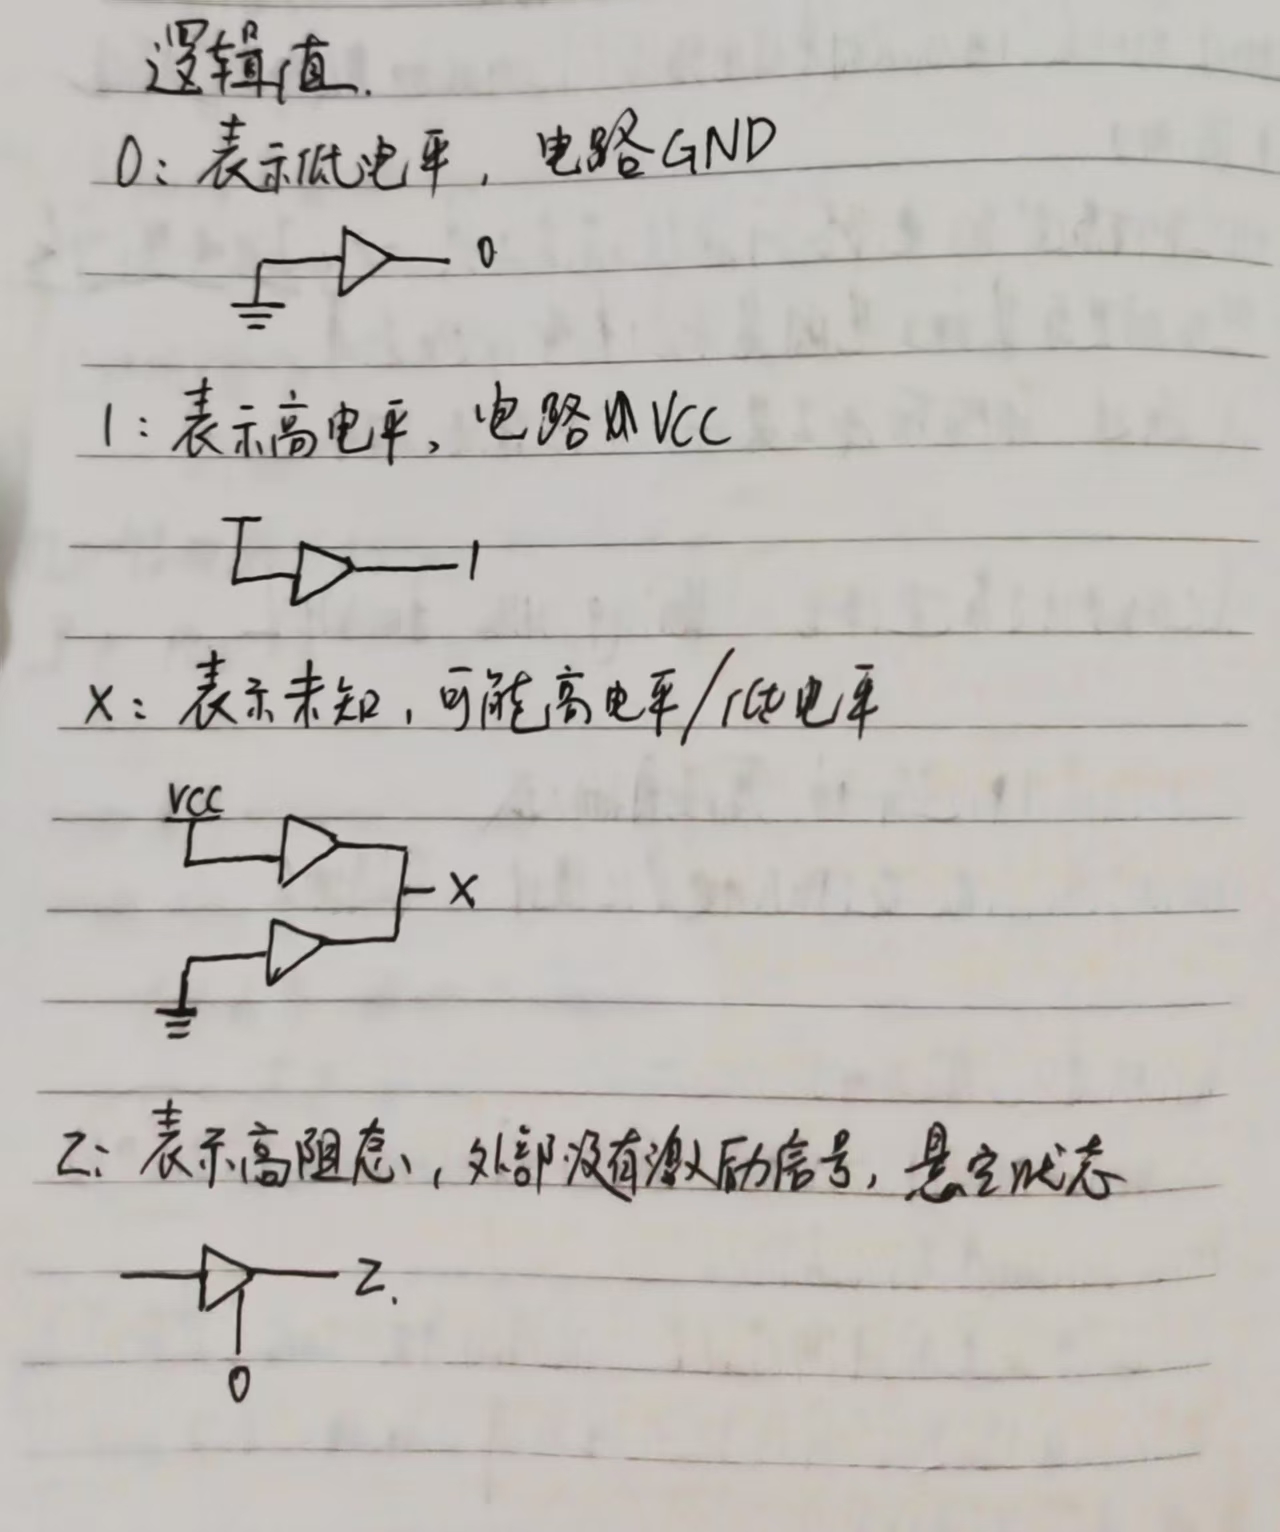 逻辑值.
0：表示低电平，电路GND
0
1：表示高电平，电路VCC
1
X：表示未知，可能高电平/低电平
VCC
X
Z：表示高阻态，外部没有激励信号，悬空状态
Z.
0